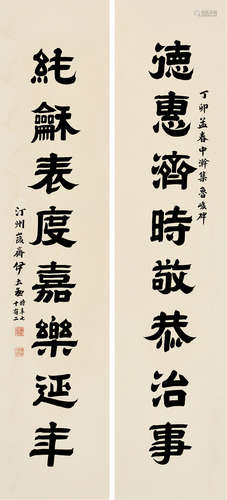 德惠濟時敬恭治事
丁卯孟春中澣集魯峻碑
純龢表度嘉樂延年
汀州峻齋伊立勳
時年七十有二